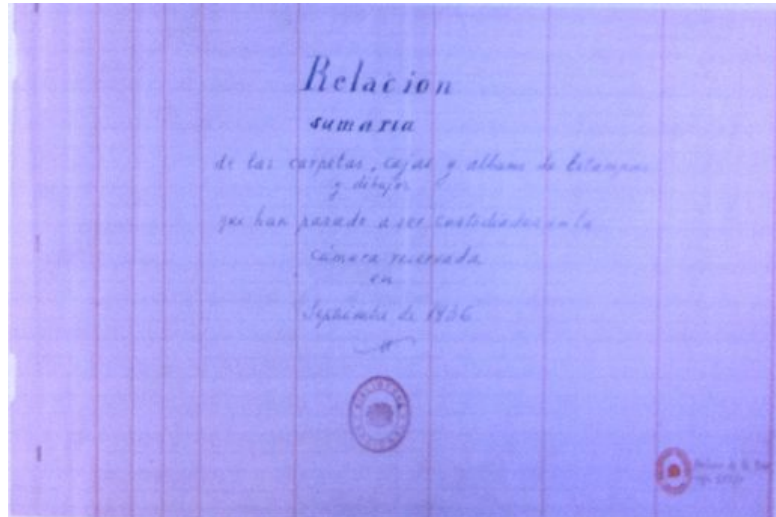 Relacion
sumaria
de las carpetas, cajas y albums de Estampas
y dibujos
que han pasado a ser custodiados en la
cámara reservada
en
Septiembre de 1936
BIBLIOTECA